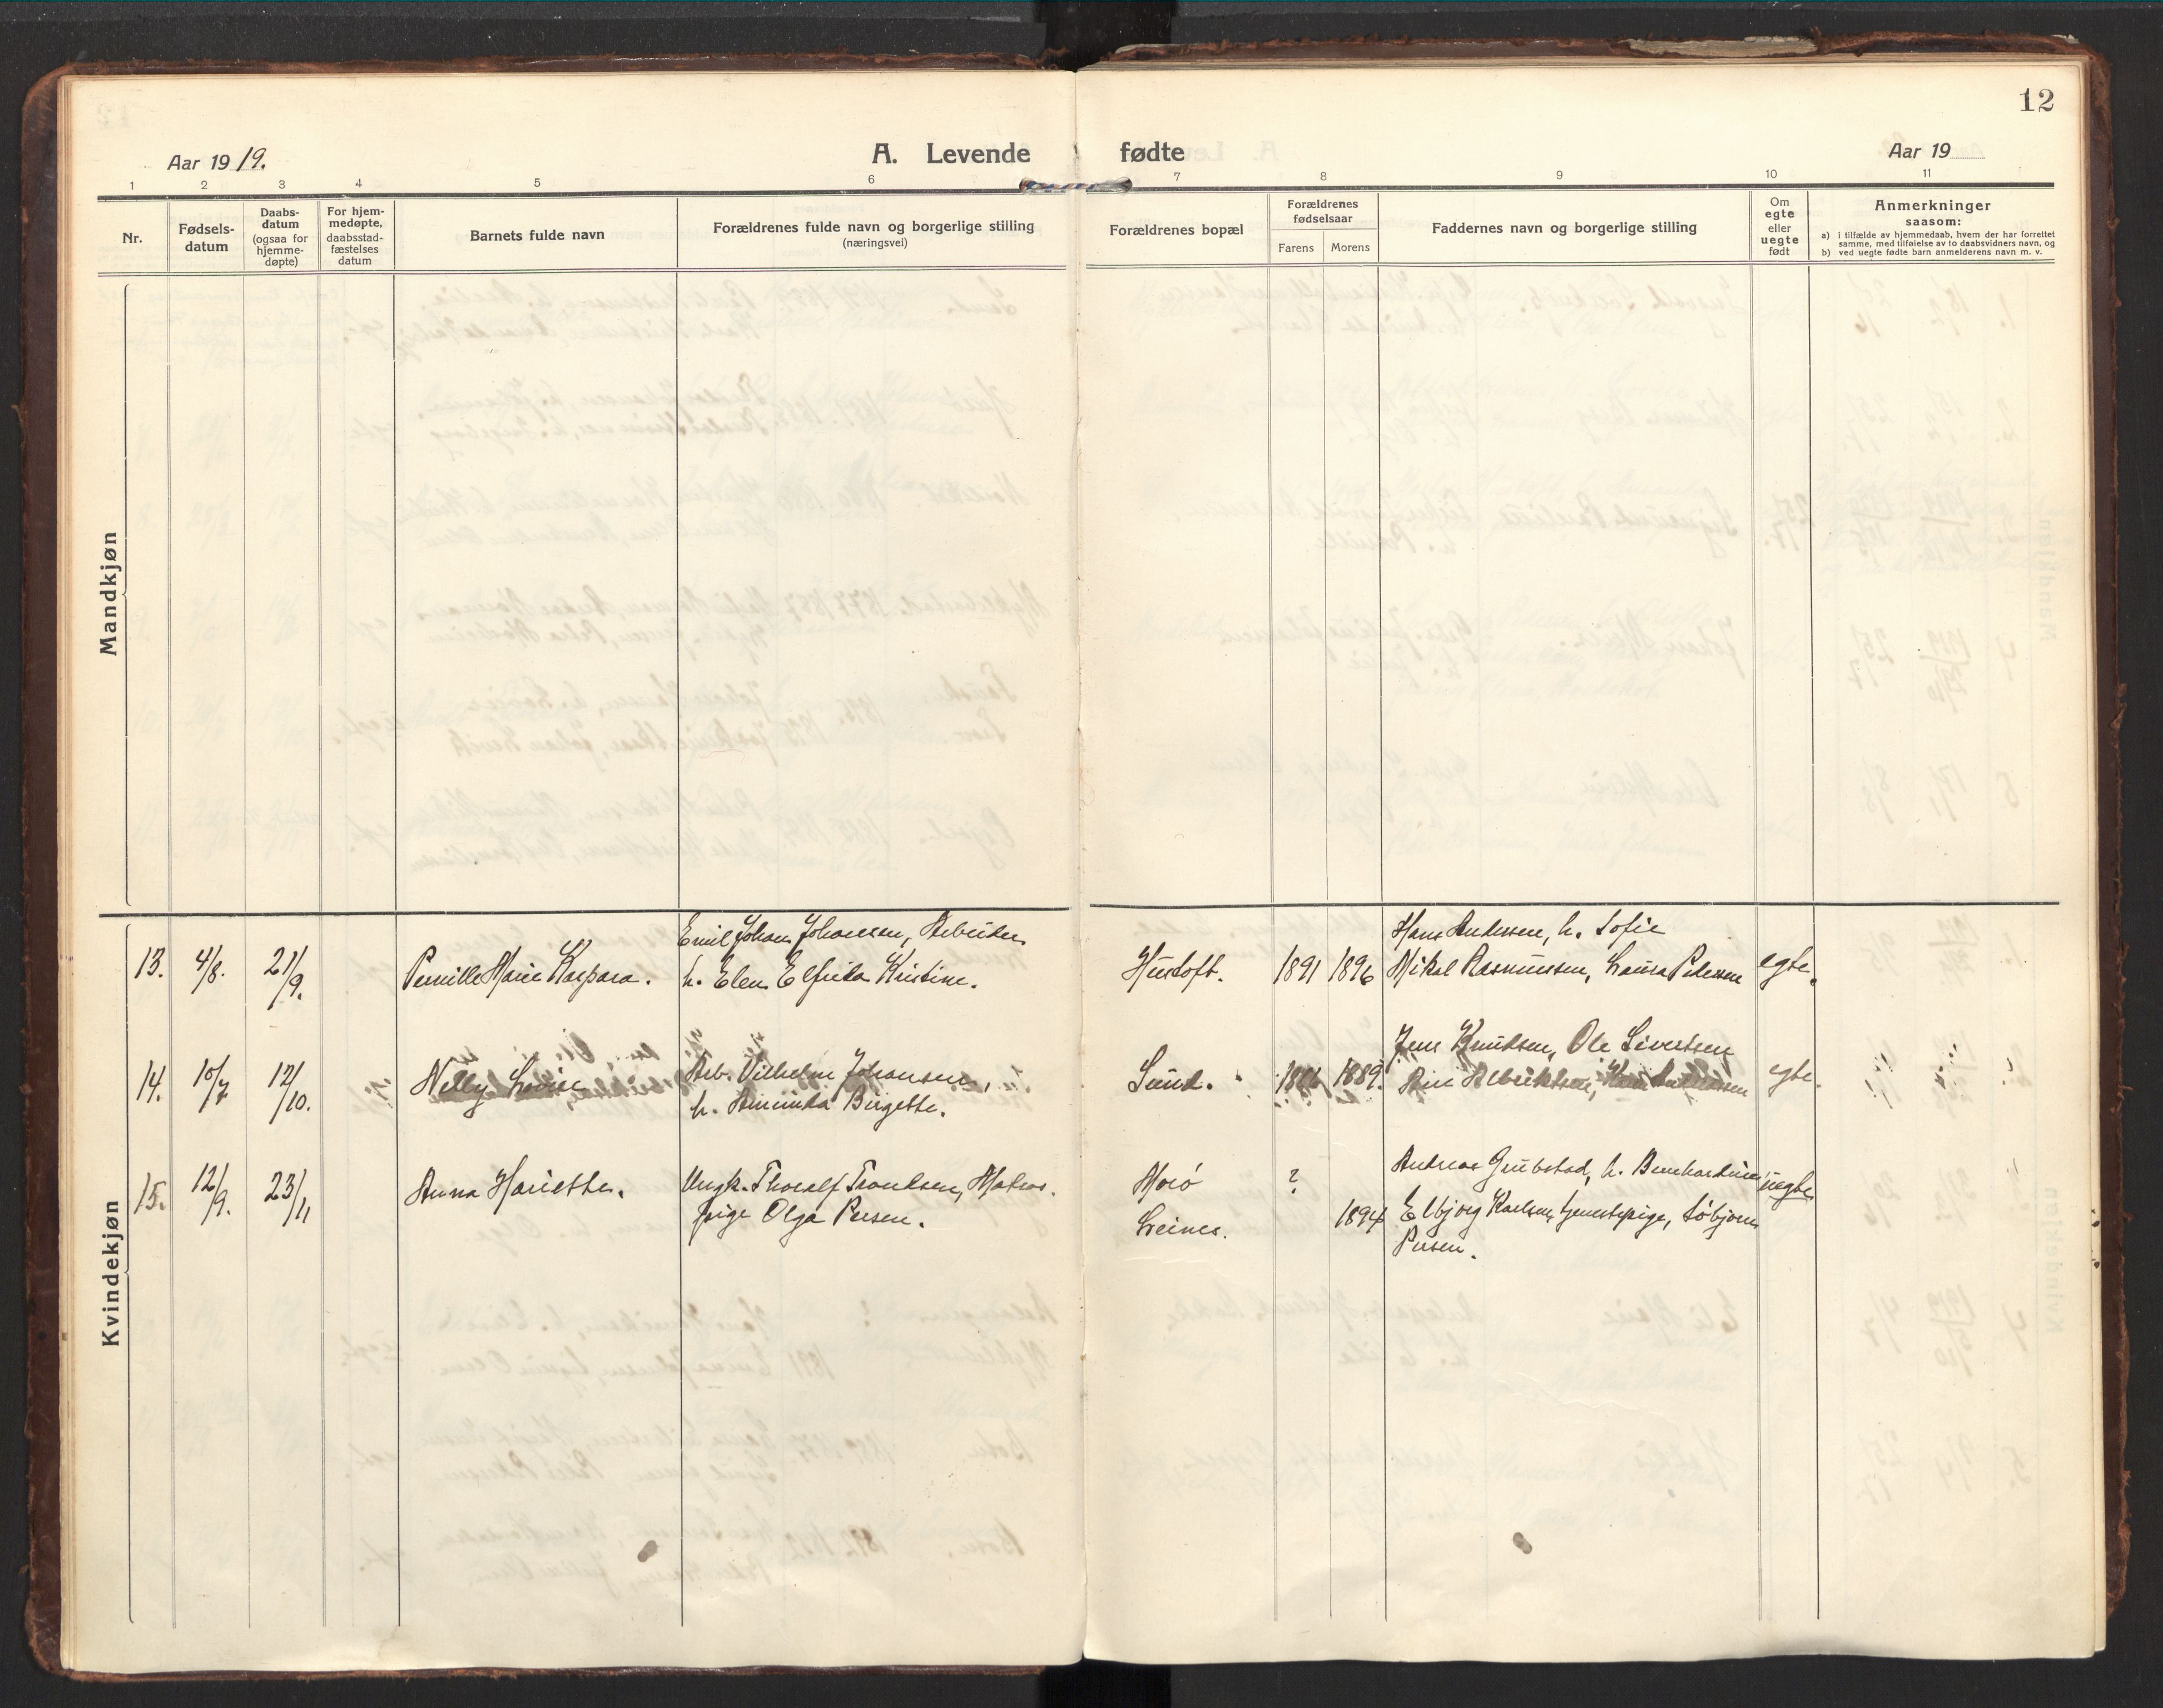 12
Aar 1919.
A. Levende fødte
Aar 19
1 2 3 4 5 6 7 8 9 10 11
Nr.
Fødsels-
datum
Daabs-
datum
(ogsaa for
hjemme-
døpte)
For hjem-
medøpte,
daabsstad-
fæstelses
datum
Barnets fulde navn
Forældrenes fulde navn og borgerlige stilling
(næringsvei)
Forældrenes bopæl
Forældrenes
fødselsaar
Farens Morens
Faddernes navn og borgerlige stilling
Om
egte
eller
uegte
født
Anmerkninger
saasom:
a) i tilfælde av hjemmedaab, hvem der har forrettet
samme, med tilføielse av to daabsvidners navn, og
b) ved uegte fødte barn anmelderens navn m. v.
Mandkjøn
Kvindekjøn
13. 4/8. 21/9. Pernille Marie Kaspara.
Emil Johan Johansen, Arbeider
h. Elen Elfrida Kristine.
Hustoft. 1891 1896
Hans Andersen, h. Sofie
Mikal Rasmussen, Laura Pedersen
egte.
14. 10/7 12/10. Nelly Lovise
Arb. Vilhelm Johansen,
h. Aminda Birgette.
Sund. 1889.
Jens Knudsen, Ole Sivertsen
Albriktsen,
egte.
15. 12/9. 23/11 Anna Hariette.
Ungk. Thoralf Trondsen, Matros.
pige Olga Persen.
Moró
Leines.
? 1894
Andreas Grubstad, h.
Elbjorg Karlsen, tjenestepige, Tobjorn
Persen.
uegte